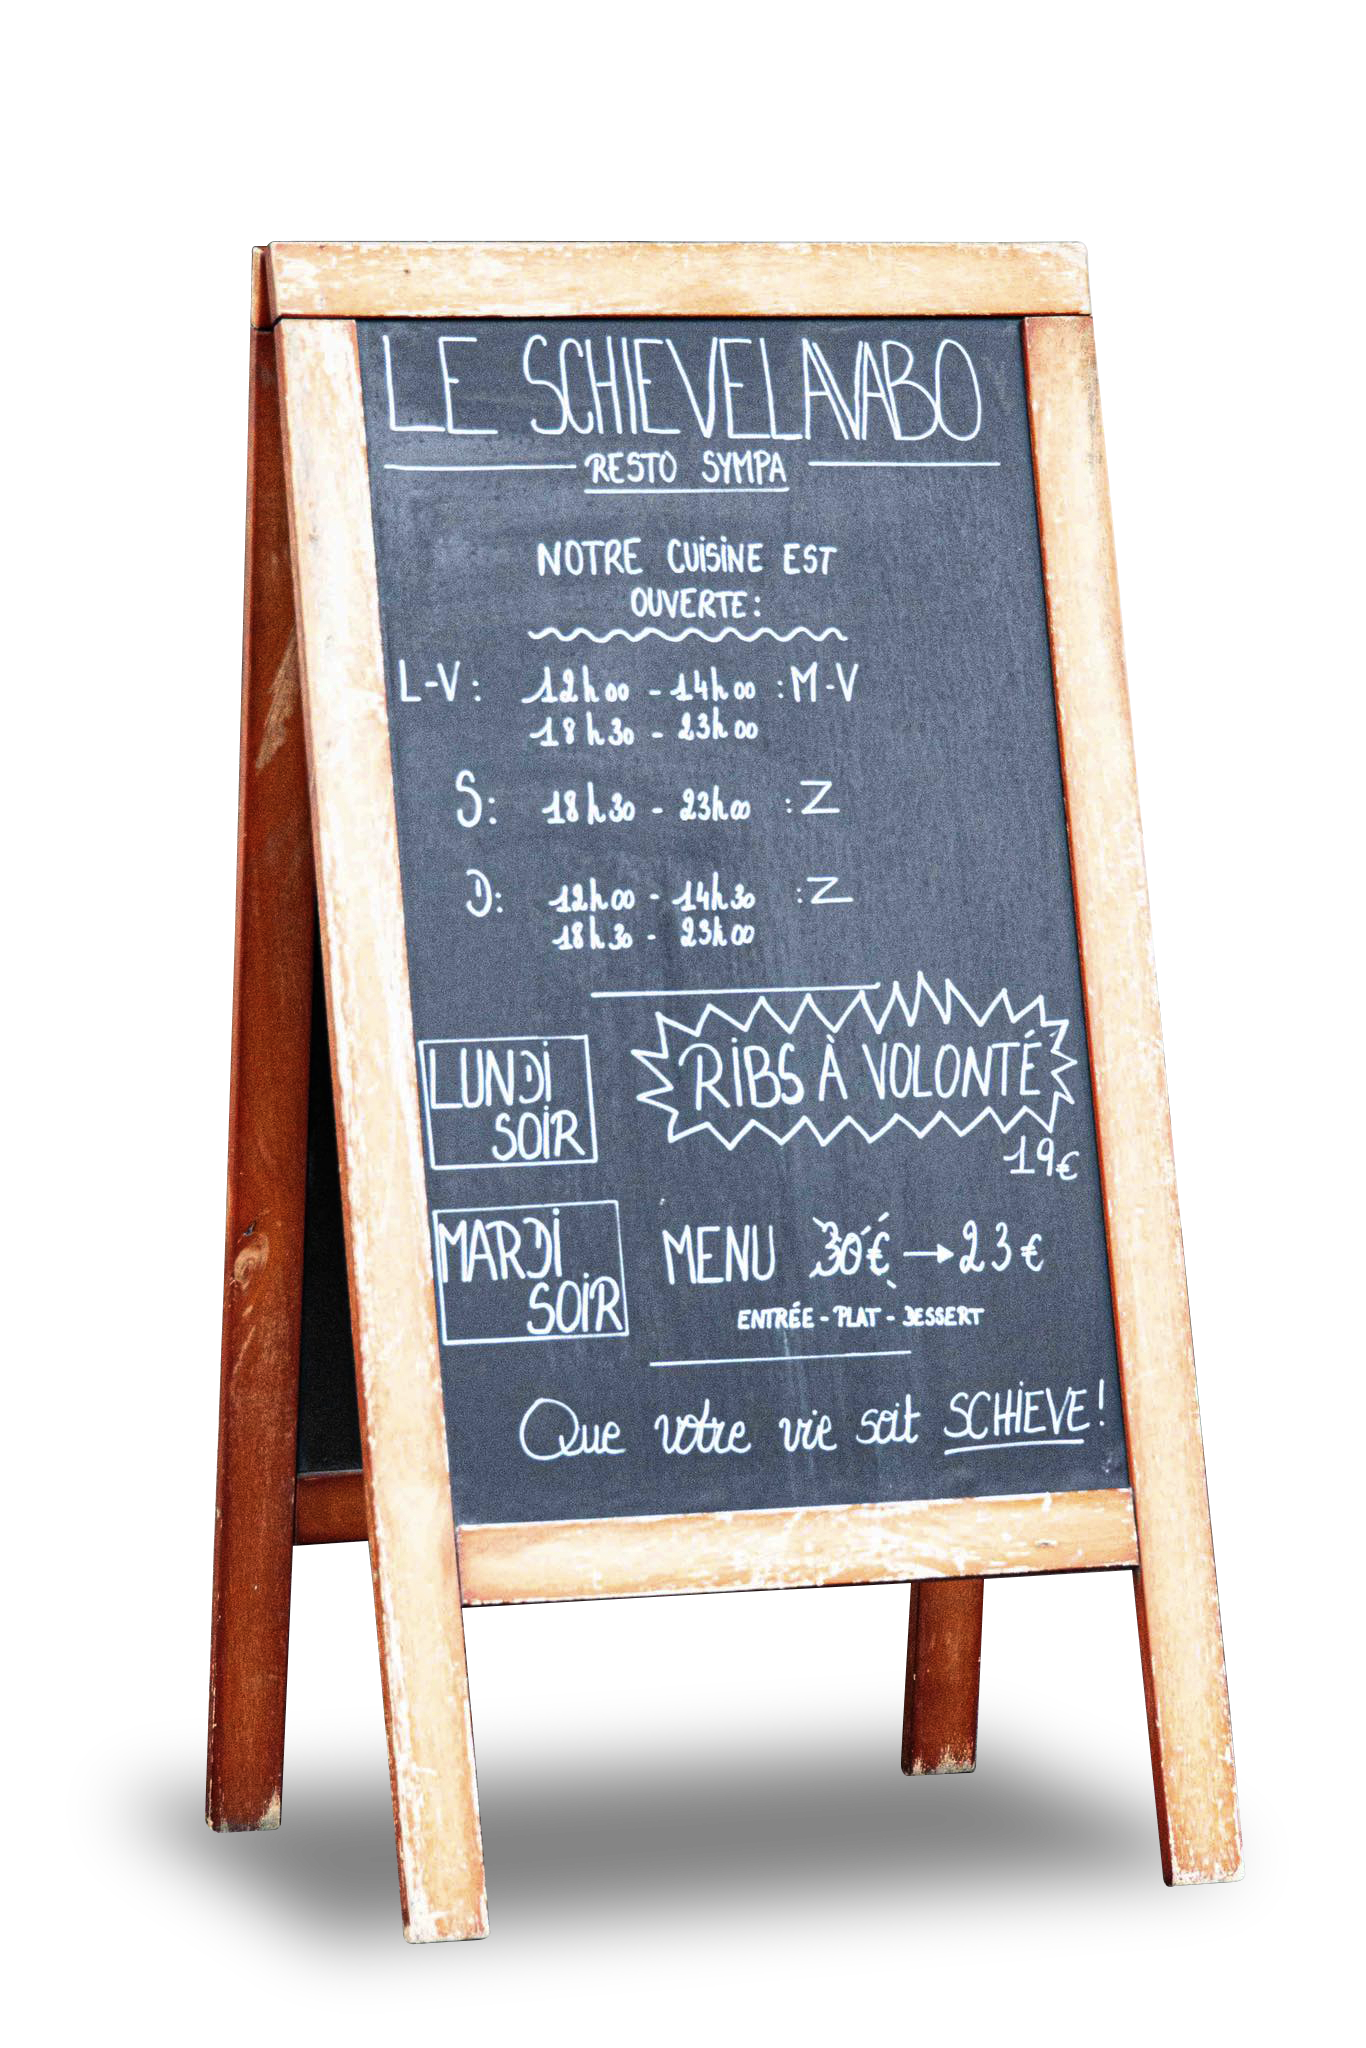 LE SCHIEVELAVABO
RESTO SYMPA
NOTRE CUISINE EST
OUVERTE:
L-V: 12h00 - 14h00 :M-V
18h30 - 23h00
S: 18h30 - 23h00 :Z
D: 12h00 - 14h30 :Z
18h30 - 23h00
LUNDI
SOIR
RIBS À VOLONTÉ
19€
MARDI
SOIR
MENU 30€ → 23€
ENTRÉE - PLAT - DESSERT
Que votre vie soit SCHIEVE!